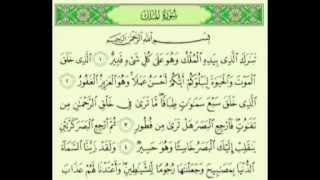 سُورَةُ الْمُلْكِ
بِسْمِ اللَّهِ الرَّحْمَٰنِ الرَّحِيمِ
تَبَٰرَكَ الَّذِى بِيَدِهِ الْمُلْكُ وَهُوَ عَلَىٰ كُلِّ شَىْءٍ قَدِيرٌ ١ الَّذِى خَلَقَ
الْمَوْتَ وَالْحَيَوٰةَ لِيَبْلُوَكُمْ أَيُّكُمْ أَحْسَنُ عَمَلًا وَهُوَ الْعَزِيزُ الْغَفُورُ ٢
الَّذِى خَلَقَ سَبْعَ سَمَٰوَٰتٍ طِبَاقًا مَّا تَرَىٰ فِى خَلْقِ الرَّحْمَٰنِ مِن
تَفَٰوُتٍ فَارْجِعِ الْبَصَرَ هَلْ تَرَىٰ مِن فُطُورٍ ٣ ثُمَّ ارْجِعِ الْبَصَرَ كَرَّتَيْنِ
يَنقَلِبْ إِلَيْكَ الْبَصَرُ خَاسِئًا وَهُوَ حَسِيرٌ ٤ وَلَقَدْ زَيَّنَّا السَّمَآءَ
الدُّنْيَا بِمَصَٰبِيحَ وَجَعَلْنَٰهَا رُجُومًا لِّلشَّيَٰطِينِ وَأَعْتَدْنَا لَهُمْ عَذَابَ